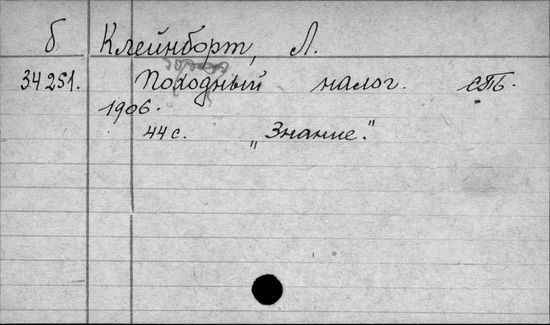 б Клейнборт, Л.
34251. Походный налог. СПБ.
1906.
44 с. „Знание."